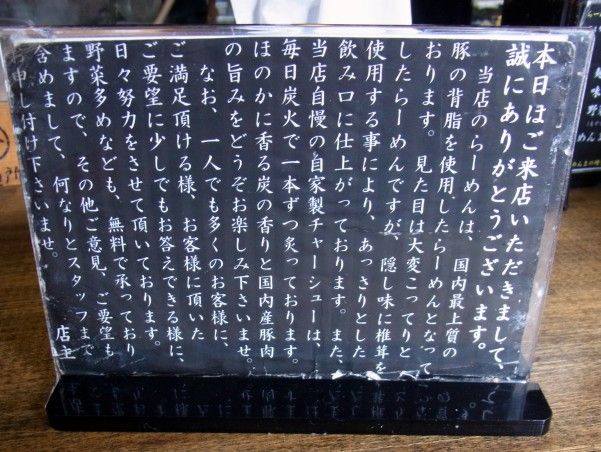 本日はご来店いただきまして、
誠にありがとうございます。
当店のらーめんは、国内最上質の
豚の背脂を使用したらーめんとなって
おります。見た目は大変こってりと
したらーめんですが、隠し味に椎茸を
使用する事により、あっさりとした
飲み口に仕上がっております。また、
当店自慢の自家製チャーシューは、
毎日炭火で一本ずつ炙っております。
ほのかに香る炭の香りと国内産豚肉
の旨みをどうぞお楽しみ下さいませ。
なお、一人でも多くのお客様に、
ご満足頂ける様、お客様に頂いた
ご要望に少しでもお答えできる様に、
日々努力をさせて頂いております。
野菜多めなども、無料で承っており
ますので、その他ご意見、ご要望も
含めまして、何なりとスタッフまで
お申し付け下さいませ。
店主